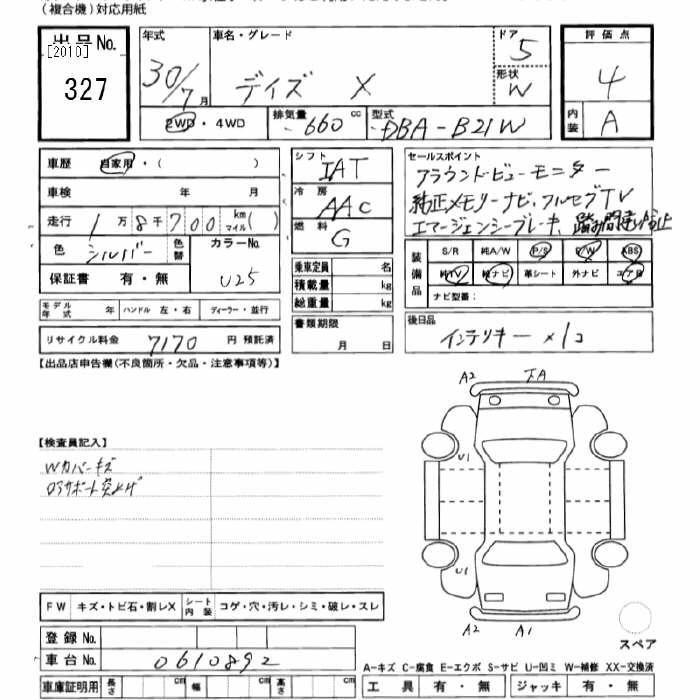 (複合機)対応用紙
出品No.
[2010]
327
年式
30/7月
車名・グレード
デイズ X
ドア
5
形状
W
評価点
4
内装
A
2WD・4WD
排気量
660cc
型式
DBA-B21W
車歴 自家用・( )
車検 年 月
走行 1万8千700km マイル( )
色 シルバー
色替
カラーNo.
U25
保証書 有・無
モデル年式 年 ハンドル 左・右 ディーラー・並行
リサイクル料金 7170 円 預託済
シフト
IAT
冷房
AAC
燃料
G
乗車定員 名
積載量 kg
総重量 kg
書類期限
月 日
セールスポイント
アラウンドビューモニター
純正メモリーナビ、フルセグTV
エマージェンシーブレーキ、踏み間違い防止
装備品
S/R 純A/W P/S P/W ABS
純TV 純ナビ 革シート 外ナビ エアB
ナビ型番:
後日品
インテリキー×1コ
【出品店申告欄(不良箇所・欠品・注意事項等)】
【検査員記入】
Wカバーキズ
ロアサポート突上げ
A2 下A
U1
U1
A2 A1
スペア
FW キズ・トビ石・割レX シート内装 コゲ・穴・汚レ・シミ・破レ・スレ
登録No.
車台No. 0610892
車庫証明用 長さ cm 幅 cm 高さ cm
A-キズ C-腐食 E-エクボ S-サビ U-凹ミ W-補修 XX-交換済
工具 有・無 ジャッキ 有・無